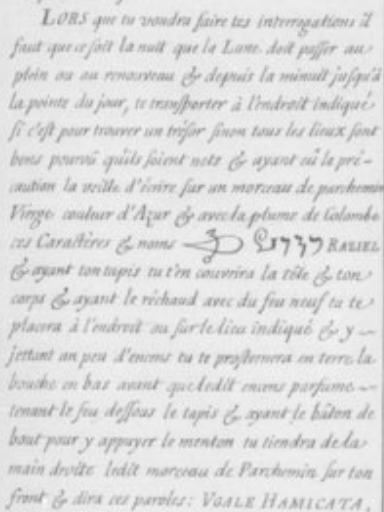 LORS que tu voudra faire tes interrogations il
faut que ce soit la nuit que la Lune doit passer au
plein ou au renouveau & depuis la minuit jusqu'à
la pointe du jour, te transporter à l'endroit indiqué
si c'est pour trouver un trésor sinon tous les lieux sont
bons pourvû qu'ils soient nets & ayant eû la pré-
caution la veille d'écrire sur un morceau de parchemin
Vierge couleur d'Azur & avec la plume de Colombe
ces Caractères & noms RAZIEL
& ayant ton tapis tu t'en couvrira la tête & ton
corps & ayant le réchaud avec du feu neuf tu te
placera à l'endroit ou sur le lieu indiqué & y
jettant un peu d'encens tu te prosternera en terre la
bouche en bas avant que ledit encens parfume
tenant le feu dessous le tapis & ayant le bâton de
bout pour y appuyer le menton tu tiendra de la
main droite ledit morceau de Parchemin sur ton
front & dira ces paroles: VGALE HAMICATA,